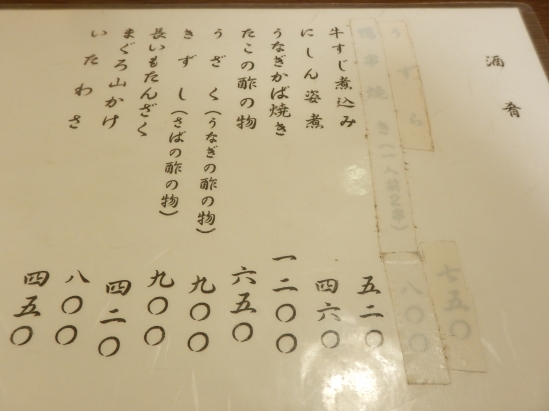 酒肴
うずら 七五〇
串焼き(一人前2串) 八〇〇
牛すじ煮込み 五二〇
にしん姿煮 四六〇
うなぎかば焼き 一二〇〇
たこの酢の物 六五〇
うざく(うなぎの酢の物) 九〇〇
きずし(さばの酢の物) 九〇〇
長いもたんざく 四二〇
まぐろ山かけ 八〇〇
いたわさ 四五〇